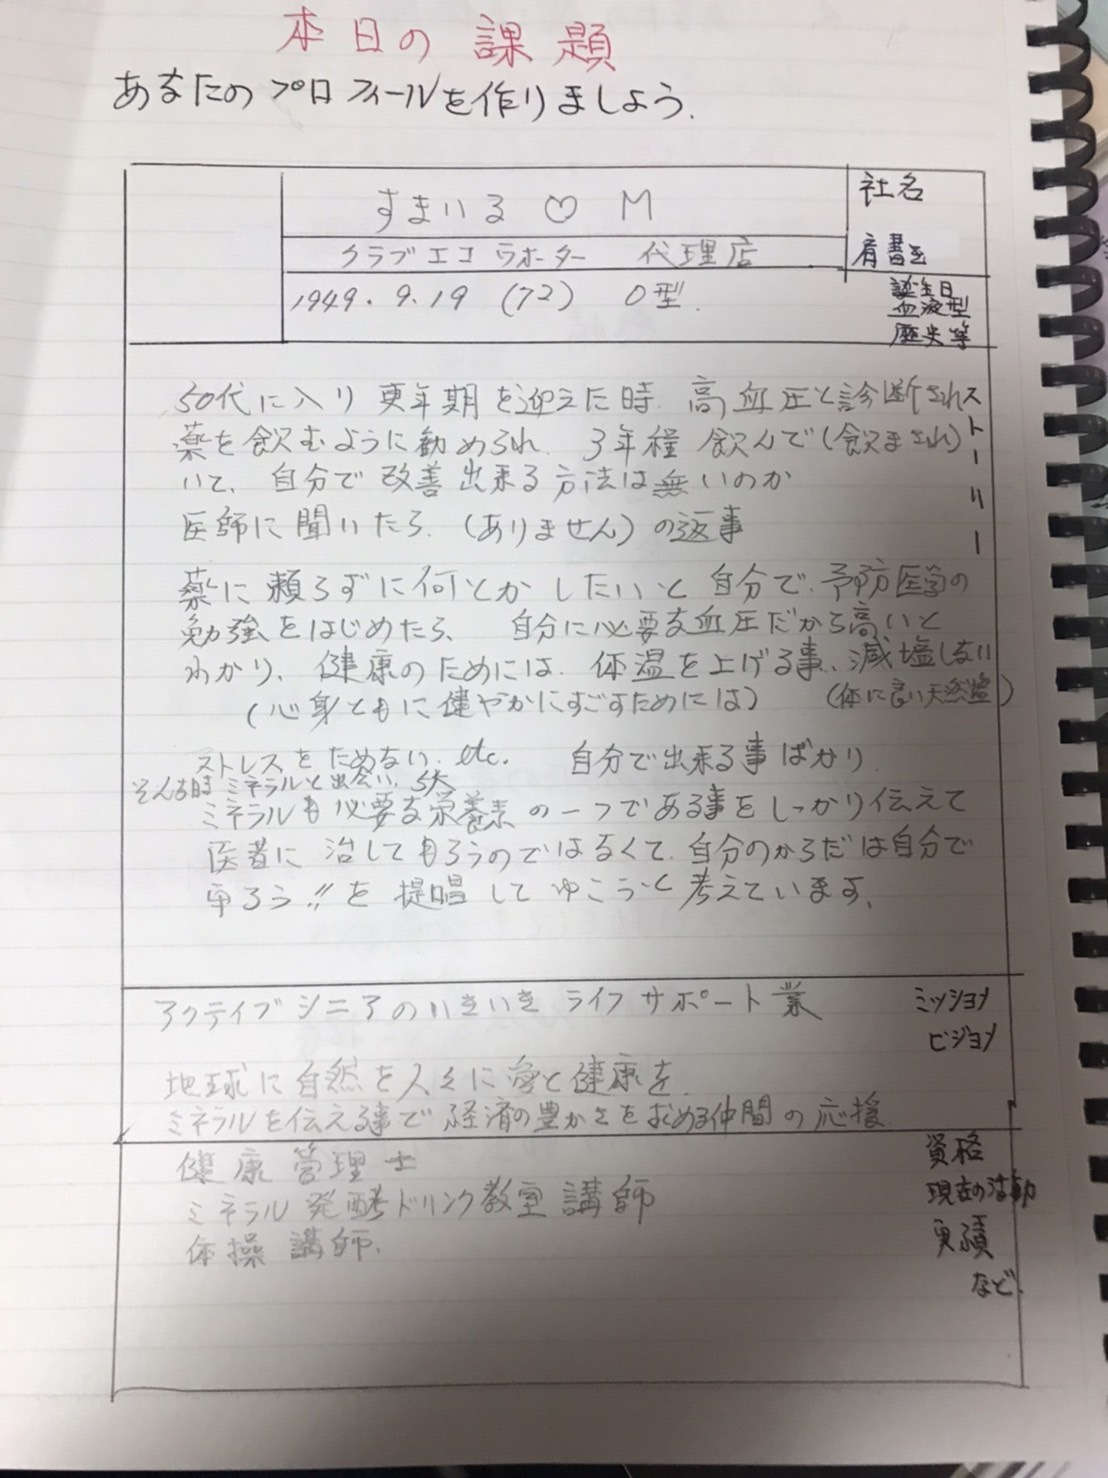 本日の課題
あなたのプロフィールを作りましょう.
すまいる♡M
社名
クラブエコウォーター 代理店
肩書き
1949.9.19 (72) O型.
誕生日
血液型
歴史等
ストーリー
50代に入り更年期を迎えた時、高血圧と診断され
薬を飲むように勧められ、3年程飲んで(飲まされ)
いて、自分で改善出来る方法は無いのか
医師に聞いたら、(ありません)の返事
薬に頼らずに何とかしたいと自分で、予防医学の
勉強をはじめたら、自分に必要な血圧だから高いと
わかり、健康のためには、体温を上げる事、減塩しない
(心身ともに健やかにすごすためには) (体に良い天然塩)
ストレスをためない、etc. 自分で出来る事ばかり
そんな時ミネラルと出会い、5大
ミネラルも必要な栄養素の一つである事をしっかり伝えて
医者に治してもらうのではなくて、自分のからだは自分で
守ろう!!を提唱してゆこうと考えています。
アクティブシニアのいきいきライフサポート業
ミッション
ビジョン
地球に自然を人々に愛と健康を
ミネラルを伝える事で経済の豊かさを求める仲間の応援
健康管理士
資格
ミネラル発酵ドリンク教室講師
現在の活動
体操講師.
実績
など.